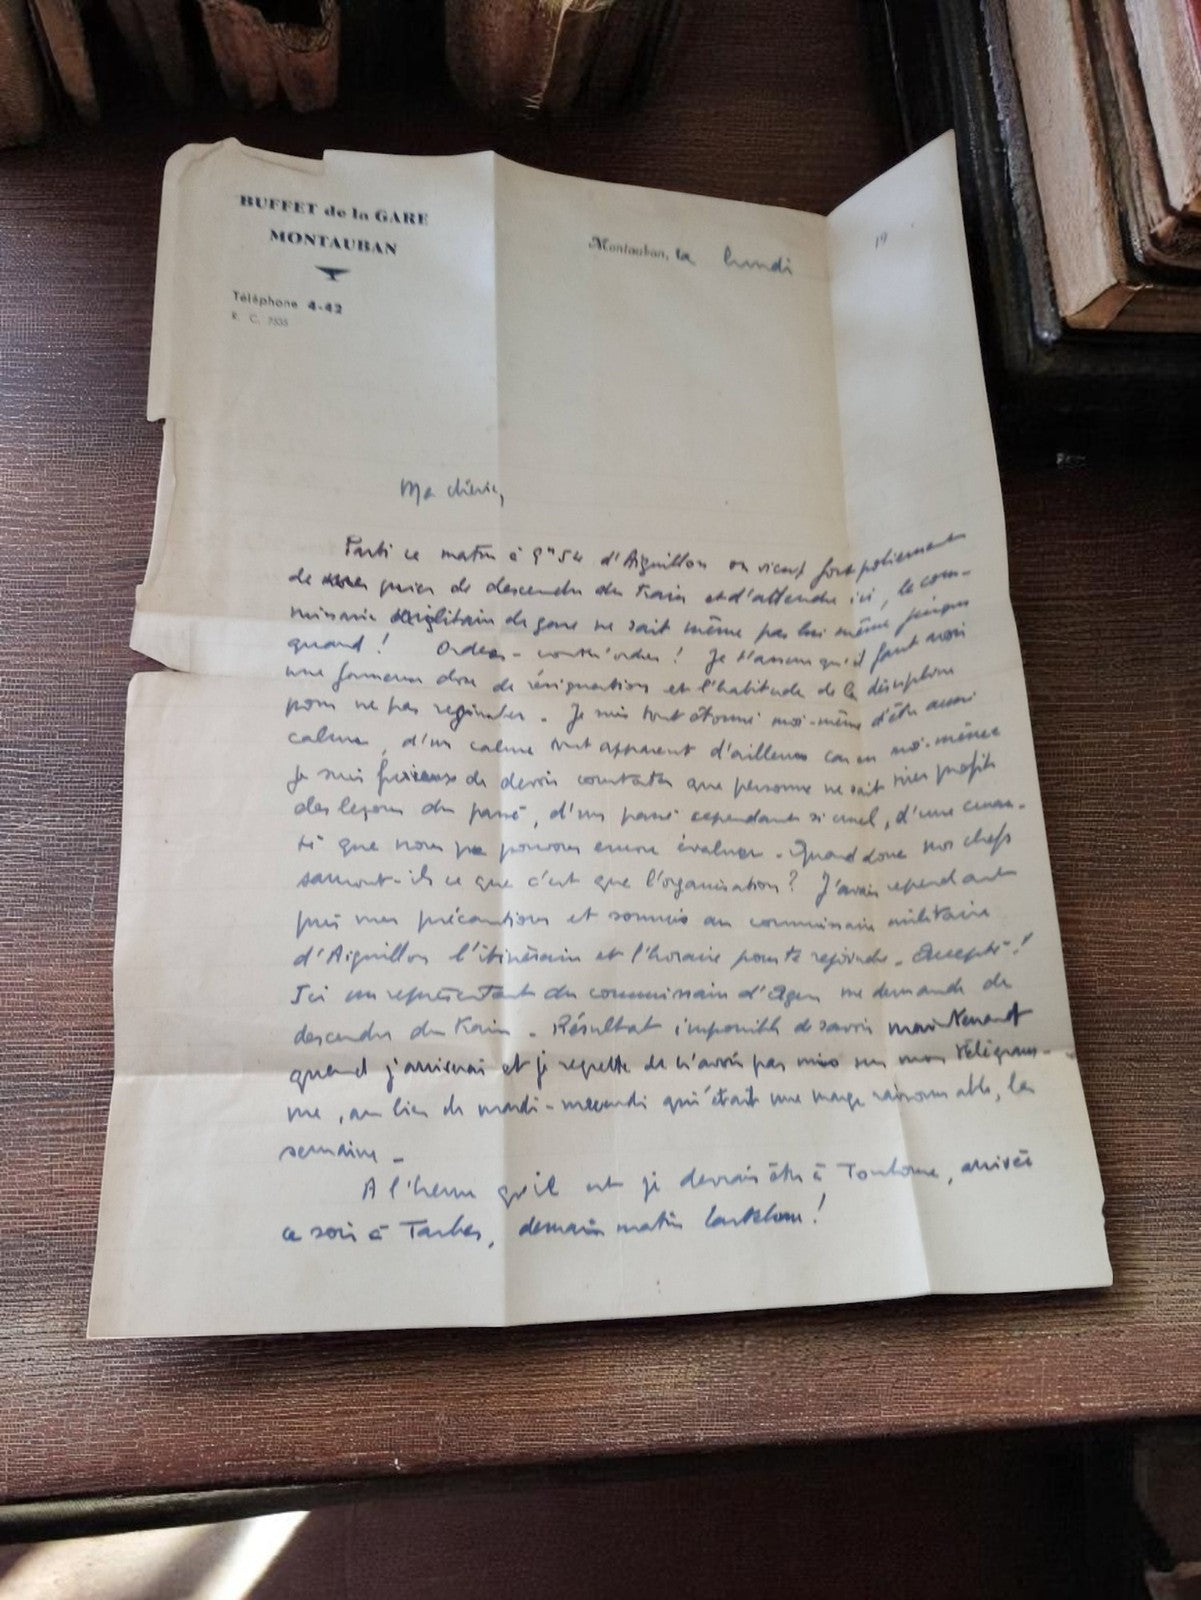 BUFFET de la GARE
MONTAUBAN
Téléphone 4-42
R. C. 7535
Montauban, le lundi 19
Ma chérie,
Parti ce matin à 9h54 d'Aiguillon on vient fort poliment
de nous prier de descendre du train et d'attendre ici, le com-
missaire militaire de gare ne sait même pas lui même jusques
quand ! Ordres - contr'ordres ! Je t'assure qu'il faut avoir
une fameuse dose de résignation et l'habitude de la discipline
pour ne pas regimber. Je suis tout étonné moi-même d'être aussi
calme, d'un calme tout apparent d'ailleurs car en moi-même
je suis furieux de devoir constater que personne ne sait tirer profit
des leçons du passé, d'un passé cependant si cruel, d'une cruau-
té que nous ne pouvons encore évaluer. Quand donc nos chefs
sauront-ils ce que c'est que l'organisation ? J'avais cependant
pris mes précautions et soumis au commissaire militaire
d'Aiguillon l'itinéraire et l'horaire pour te rejoindre. Accepté !
Ici un représentant du commissaire d'Agen me demande de
descendre du train. Résultat impossible de savoir maintenant
quand j'arriverai et je regrette de n'avoir pas mis sur mon télégram-
me, au lieu de mardi-mercredi qui était une marge raisonnable, la
semaine -
A l'heure qu'il est je devrais être à Toulouse, arrivée
ce soir à Tarbes, demain matin !